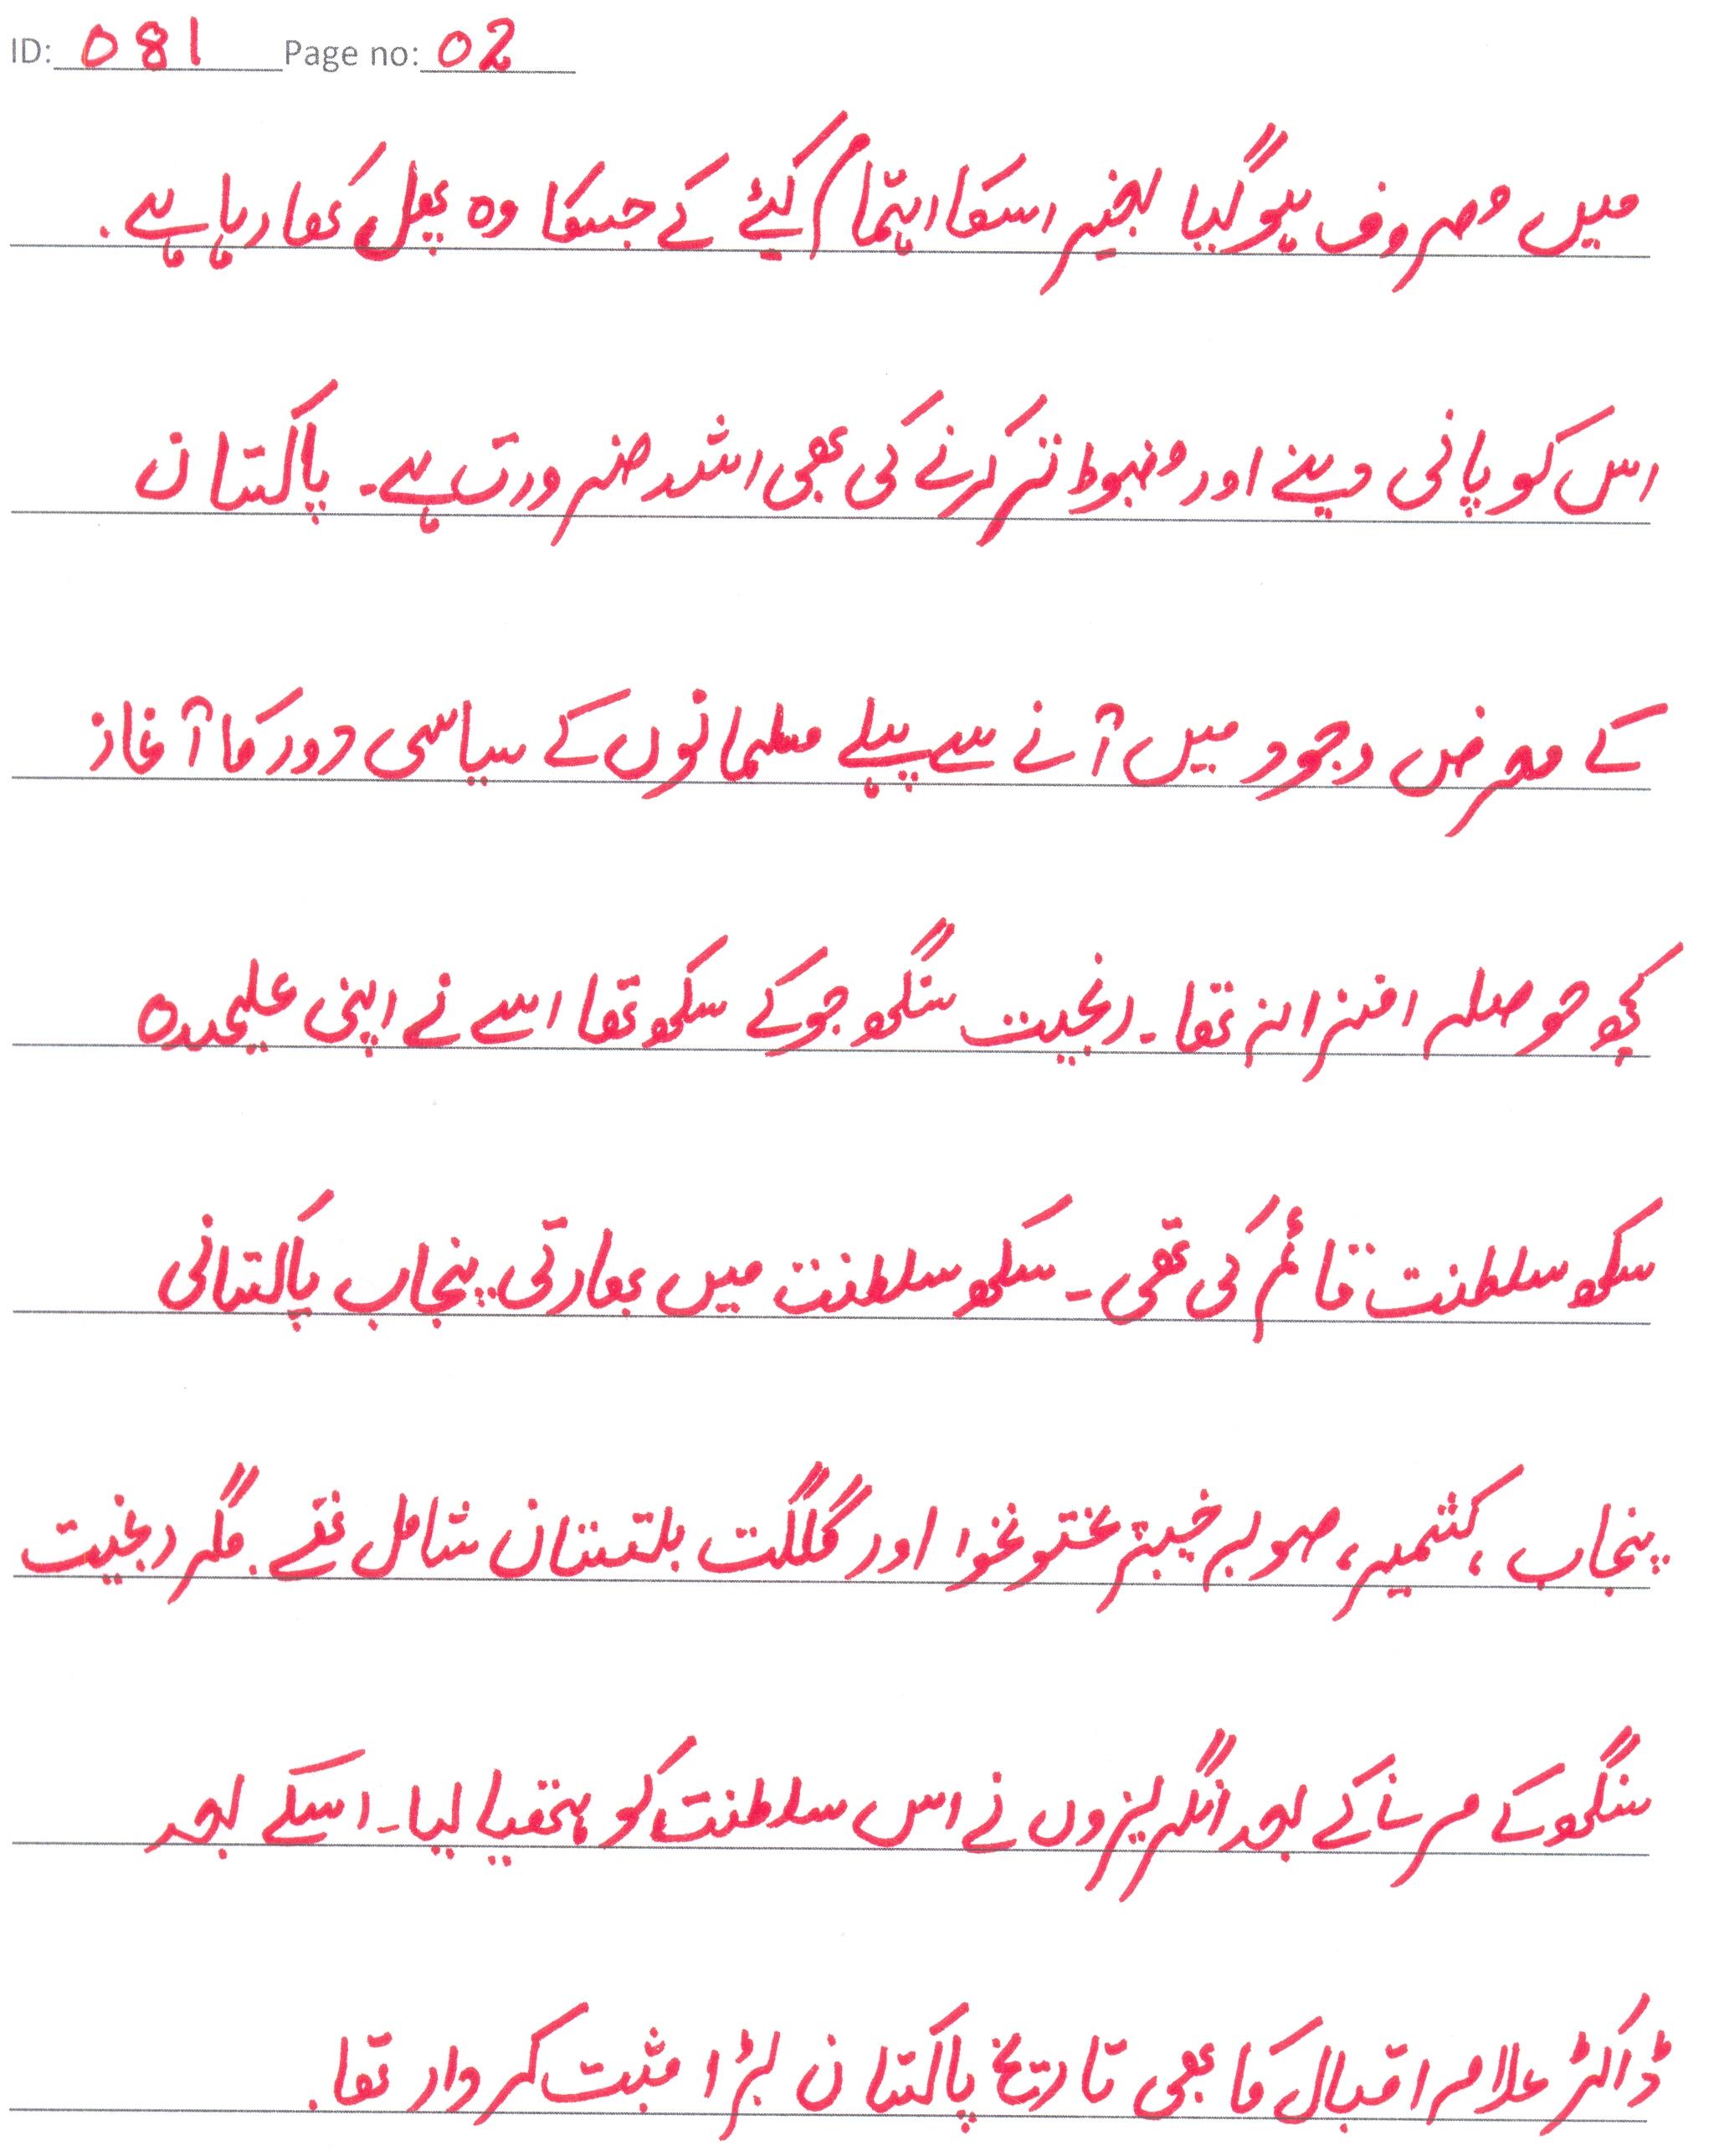 ID: 081 Page no: 02
میں مصروف ہوگیا بغیر اسکا اہتمام کیئے کے جسکا وہ پھل کھا رہا ہے.
اس کو پانی دینے اور مضبوط تر کرنے کی بھی اشد ضرورت ہے۔ پاکستان
کے معرض وجود میں آنے سے پہلے مسلمانوں کے سیاسی دور کا آغاز
کچھ حوصلہ افزا نہ تھا۔ رنجیت سنگھ جو کے سکھ تھا اسے نے اپنی علیحدہ
سکھ سلطنت قائم کی تھی۔ سکھ سلطنت میں بھارتی پنجاب پاکستانی
پنجاب، کشمیر، صوبہ خیبر پختونخوا اور گلگت بلتستان شامل تھے. مگر رنجیت
سنگھ کے مرنے کے بعد انگریزوں نے اس سلطنت کو ہتھیا لیا۔ اسکے بعد
ڈاکٹر علامہ اقبال کا بھی تاریخ پاکستان بڑا مثبت کردار تھا.